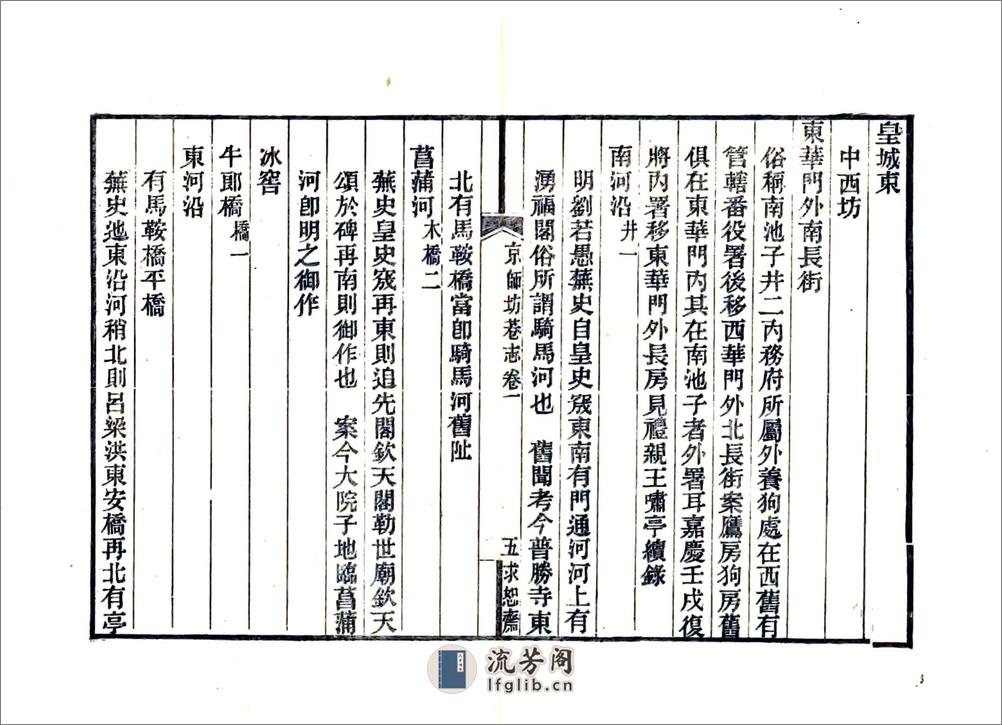 皇城東
中西坊
東華門外南長街
俗稱南池子井二內務府所屬外養狗處在西舊有
管轄番役署後移西華門外北長街案鷹房狗房舊
俱在東華門內其在南池子者外署耳嘉慶壬戌復
將內署移東華門外長房見禮親王嘯亭續錄
南河沿井一
明劉若愚蕪史自皇史宬東南有門通河河上有
湧福閣俗所謂騎馬河也　舊聞考今普勝寺東
京師坊巷志卷一
五
求恕齋
北有馬鞍橋當卽騎馬河舊阯
菖蒲河木橋二
蕪史皇史宬再東則追先閣欽天閣勒世廟欽天
頌於碑再南則御作也　案今大院子地臨菖蒲
河卽明之御作
冰窖
牛郎橋橋一
東河沿
有馬鞍橋平橋
蕪史迆東沿河稍北則呂梁洪東安橋再北有亭
流芳阁
lfglib.cn